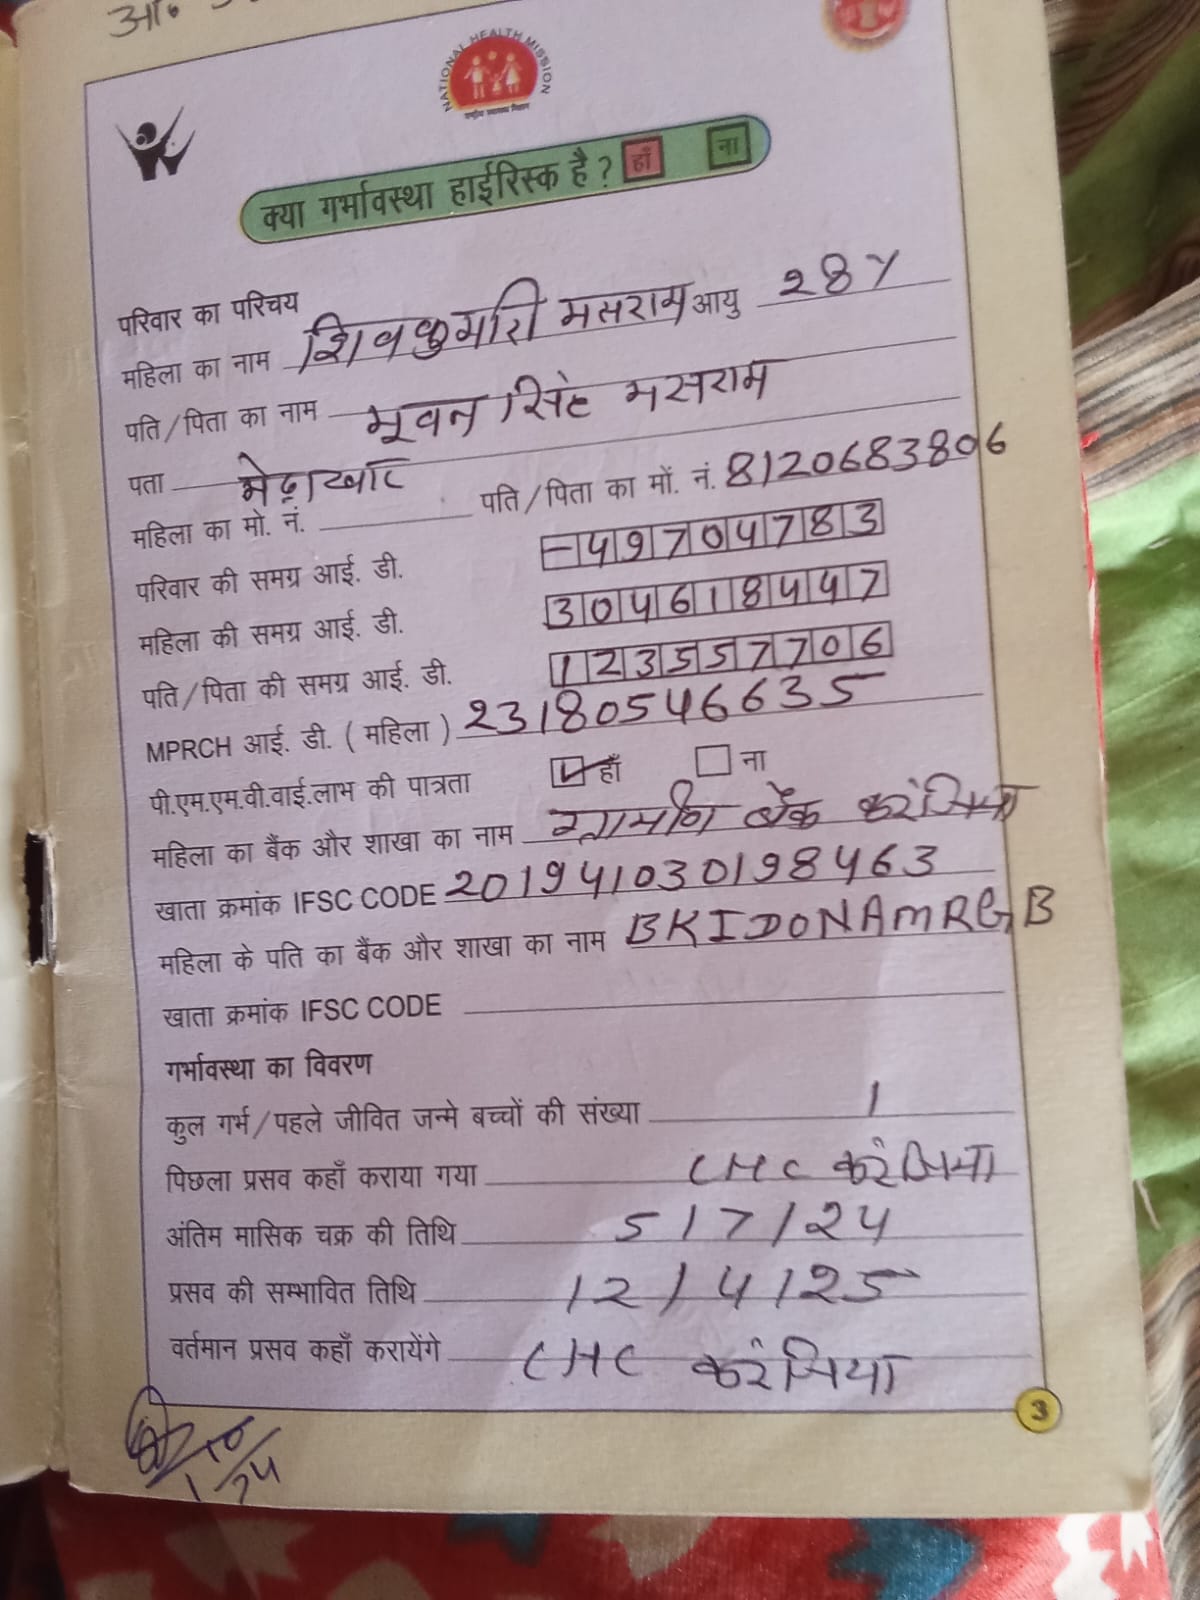 आ०
NATIONAL HEALTH MISSION
राष्ट्रीय स्वास्थ्य मिशन
क्या गर्भावस्था हाईरिस्क है ? हाँ ना
परिवार का परिचय
महिला का नाम शिवकुमारी मसराम आयु 28 y
पति/पिता का नाम भूवन सिंह मसराम
पता मेढ़ाखार
महिला का मो. नं. पति/पिता का मों. नं. 8120683806
परिवार की समग्र आई. डी. - 49704783
महिला की समग्र आई. डी. 304618447
पति/पिता की समग्र आई. डी. 123557706
MPRCH आई. डी. ( महिला ) 23180546635
पी.एम.एम.वी.वाई.लाभ की पात्रता हाँ ना
महिला का बैंक और शाखा का नाम ग्रामीण बैंक करंजिया
खाता क्रमांक IFSC CODE 201941030198463
महिला के पति का बैंक और शाखा का नाम BKIDONAMRGB
खाता क्रमांक IFSC CODE
गर्भावस्था का विवरण
कुल गर्भ/पहले जीवित जन्मे बच्चों की संख्या 1
पिछला प्रसव कहाँ कराया गया CHC करंजिया
अंतिम मासिक चक्र की तिथि 5/7/24
प्रसव की सम्भावित तिथि 12/4/25
वर्तमान प्रसव कहाँ करायेंगे CHC करंजिया
3